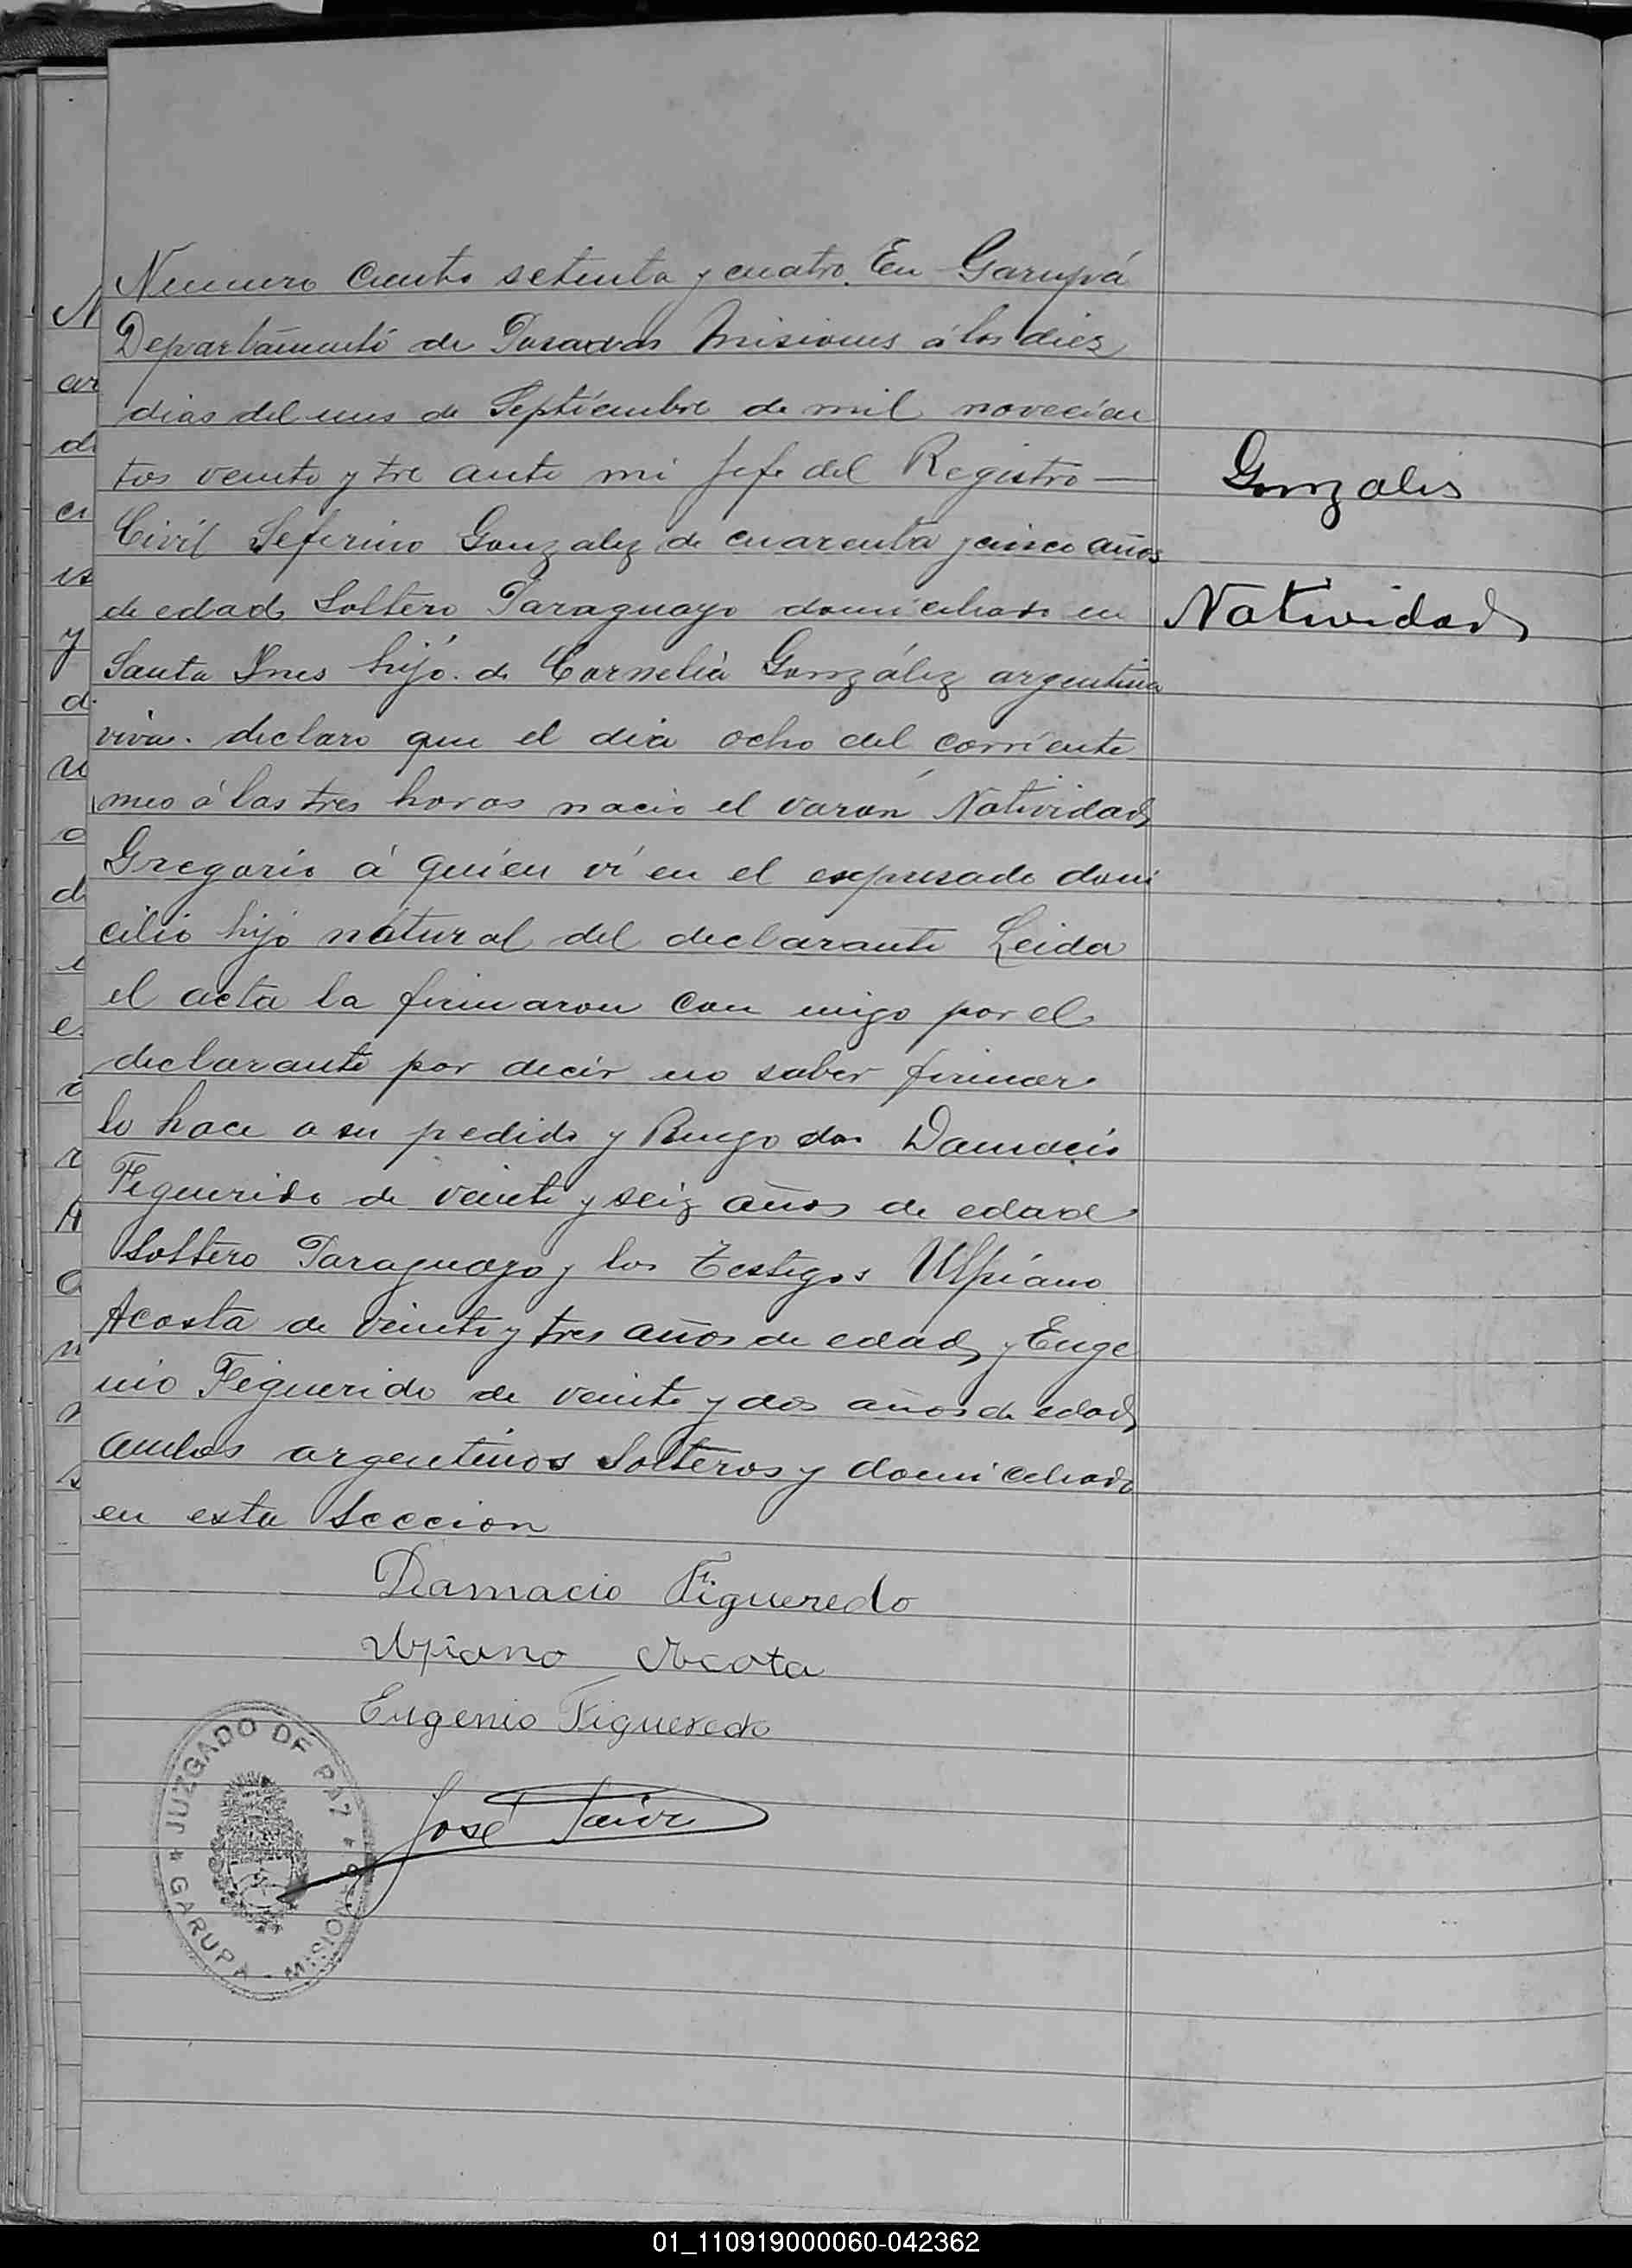 Numero Ciento setenta y cuatro. En Garupá
Departamento de Posadas Misiones á los diez
dias del mes de Septiembre de mil novecien
tos veinte y tre ante mi Jefe del Registro —
Civil Seferino Gonzalez de cuarenta y cinco años
de edad Soltero Paraguayo domiciliado en
Santa Ynes hijo de Cornelia González argentina
viva. declaro que el dia ocho del corriente
mes á las tres horas nacio el varon Natividad
Gregorio á quien ví en el espresado domi
cilio hijo natural del declarante Leida
el acta la firmaron con migo por el
declarante por decir no saber firmar
lo hace a su pedido y Ruego don Damacio
Figuerido de veinte y seiz años de edad
Soltero Paraguayo y los testigos Ulpiano
Acosta de veinte y tres años de edad y Euge
nio Figuerido de veinte y dos años de edad
ambos argentinos Solteros y domiciliado
en esta Seccion
Gonzales
Natividad
Damacio Figueredo
Ulpiano Acota
Eugenio Figueredo
José
JUZGADO DE PAZ
GARUPA - MISIONES
01_110919000060-042362